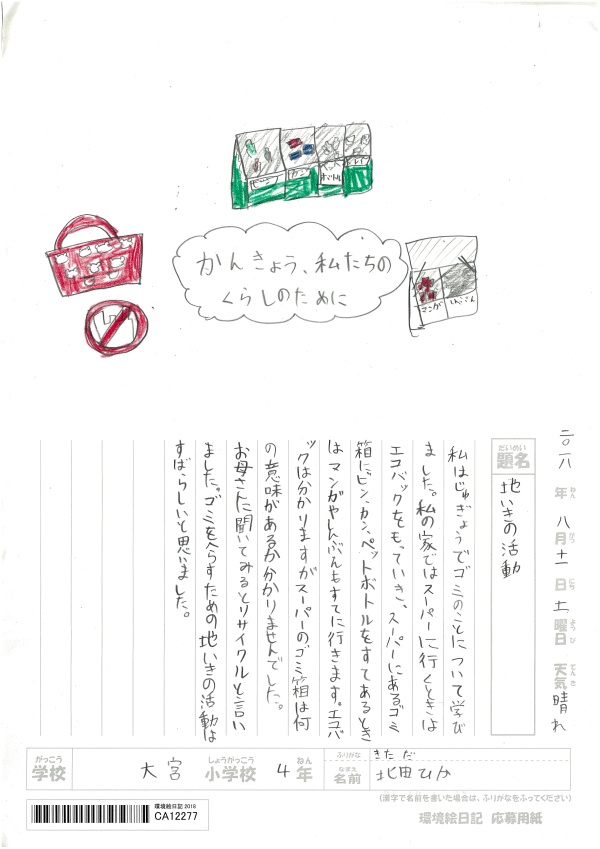 ビン
カン
ペット
ボトル
トレイ
かんきょう、私たちの
くらしのために
マンガ
しんぶん
二〇一八年八月十一日土曜日 天気 晴れ
ねん がつ にち ようび てんき
だいめい
題名
地いきの活動
私はじゅぎょうでゴミのことについて学び
ました。私の家ではスーパーに行くときは
エコバックをもっていき、スーパーにあるゴミ
箱にビン、カン、ペットボトルをすてあるとき
は マンガやしんぶんもすてに行きます。エコバ
ックは分かりますがスーパーのゴミ箱は何
の意味があるか分かりませんでした。
お母さんに聞いてみるとリサイクルと言い
ました。ゴミをへらすための地いきの活動は
すばらしいと思いました。
がっこう しょうがっこう ねん
学校 大宮 小学校 4年
ふりがな きただ
なまえ
名前 北田ひか
(漢字で名前を書いた場合は、ふりがなをふってください)
環境絵日記 2018
CA12277
環境絵日記 応募用紙